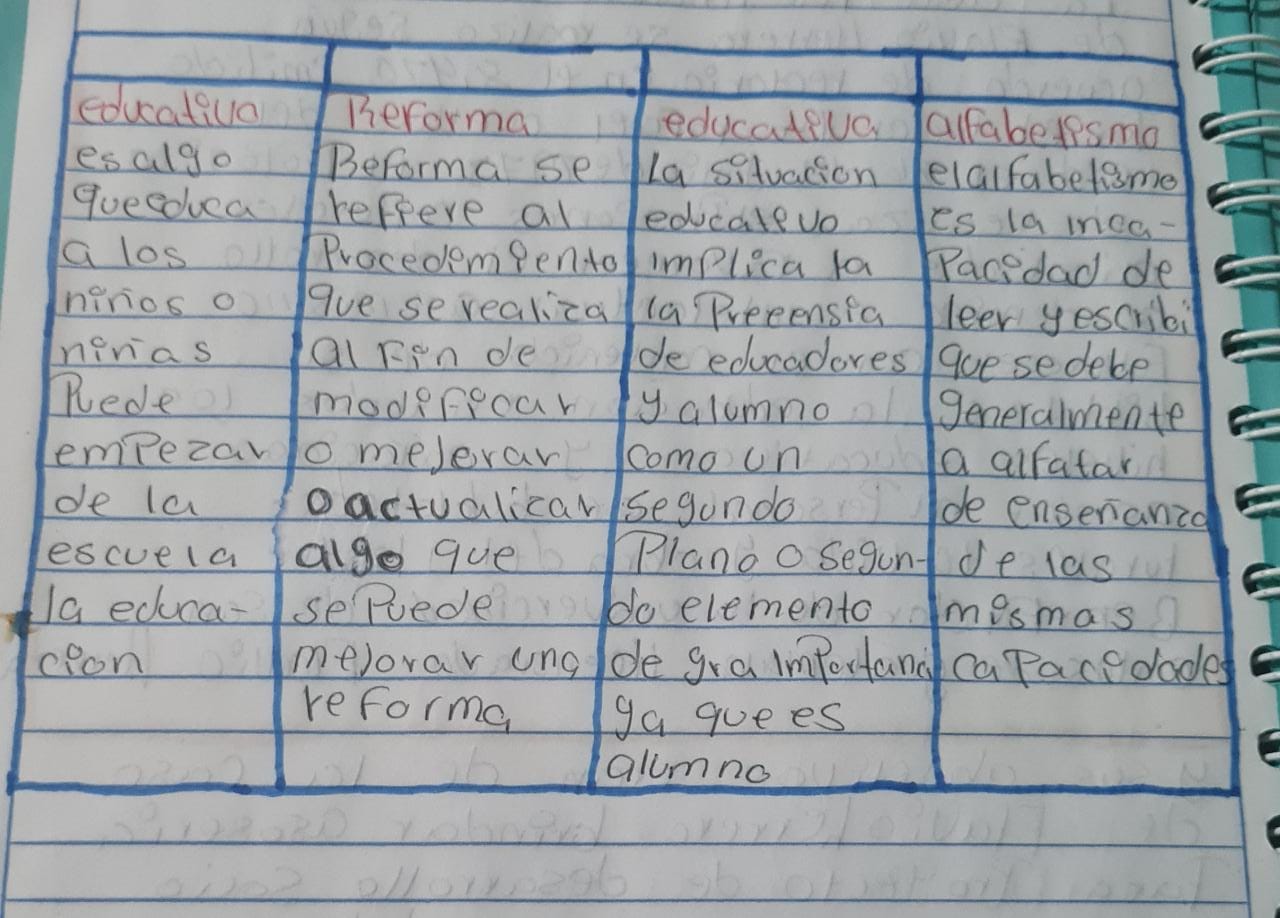 educativo
es algo
que educa
a los
niños o
niñas
Puede
empezar
de la
escuela
la educa-
cion
Reforma
Reforma se
refiere al
Procedimiento
que se realiza
al fin de
modificar
o mejorar
o actualizar
algo que
se Puede
mejorar una
reforma
educativa
la situacion
educativo
implica la
la Preeensia
de educadores
y alumno
como un
segundo
Plano o segun-
do elemento
de gra importanc
ya que es
alumno
alfabetismo
el alfabetismo
es la inca-
Pacidad de
leer y escribi
que se debe
generalmente
a alfatar
de enseñanza
de las
mismas
capacidades